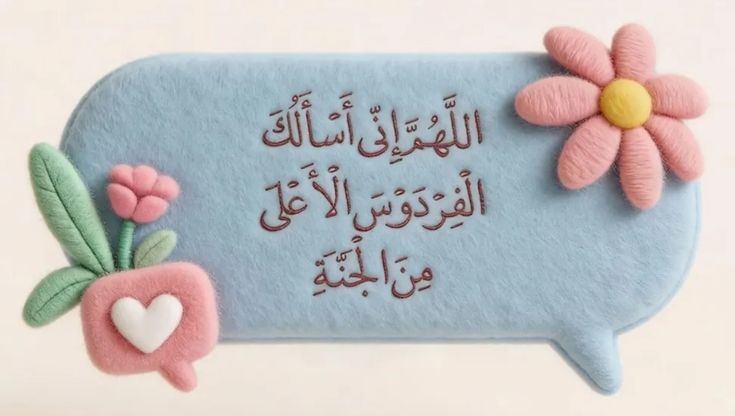 اللَّهُمَّ إِنِّي أَسْأَلُكَ
الْفِرْدَوْسَ الْأَعْلَى
مِنَ الْجَنَّةِ